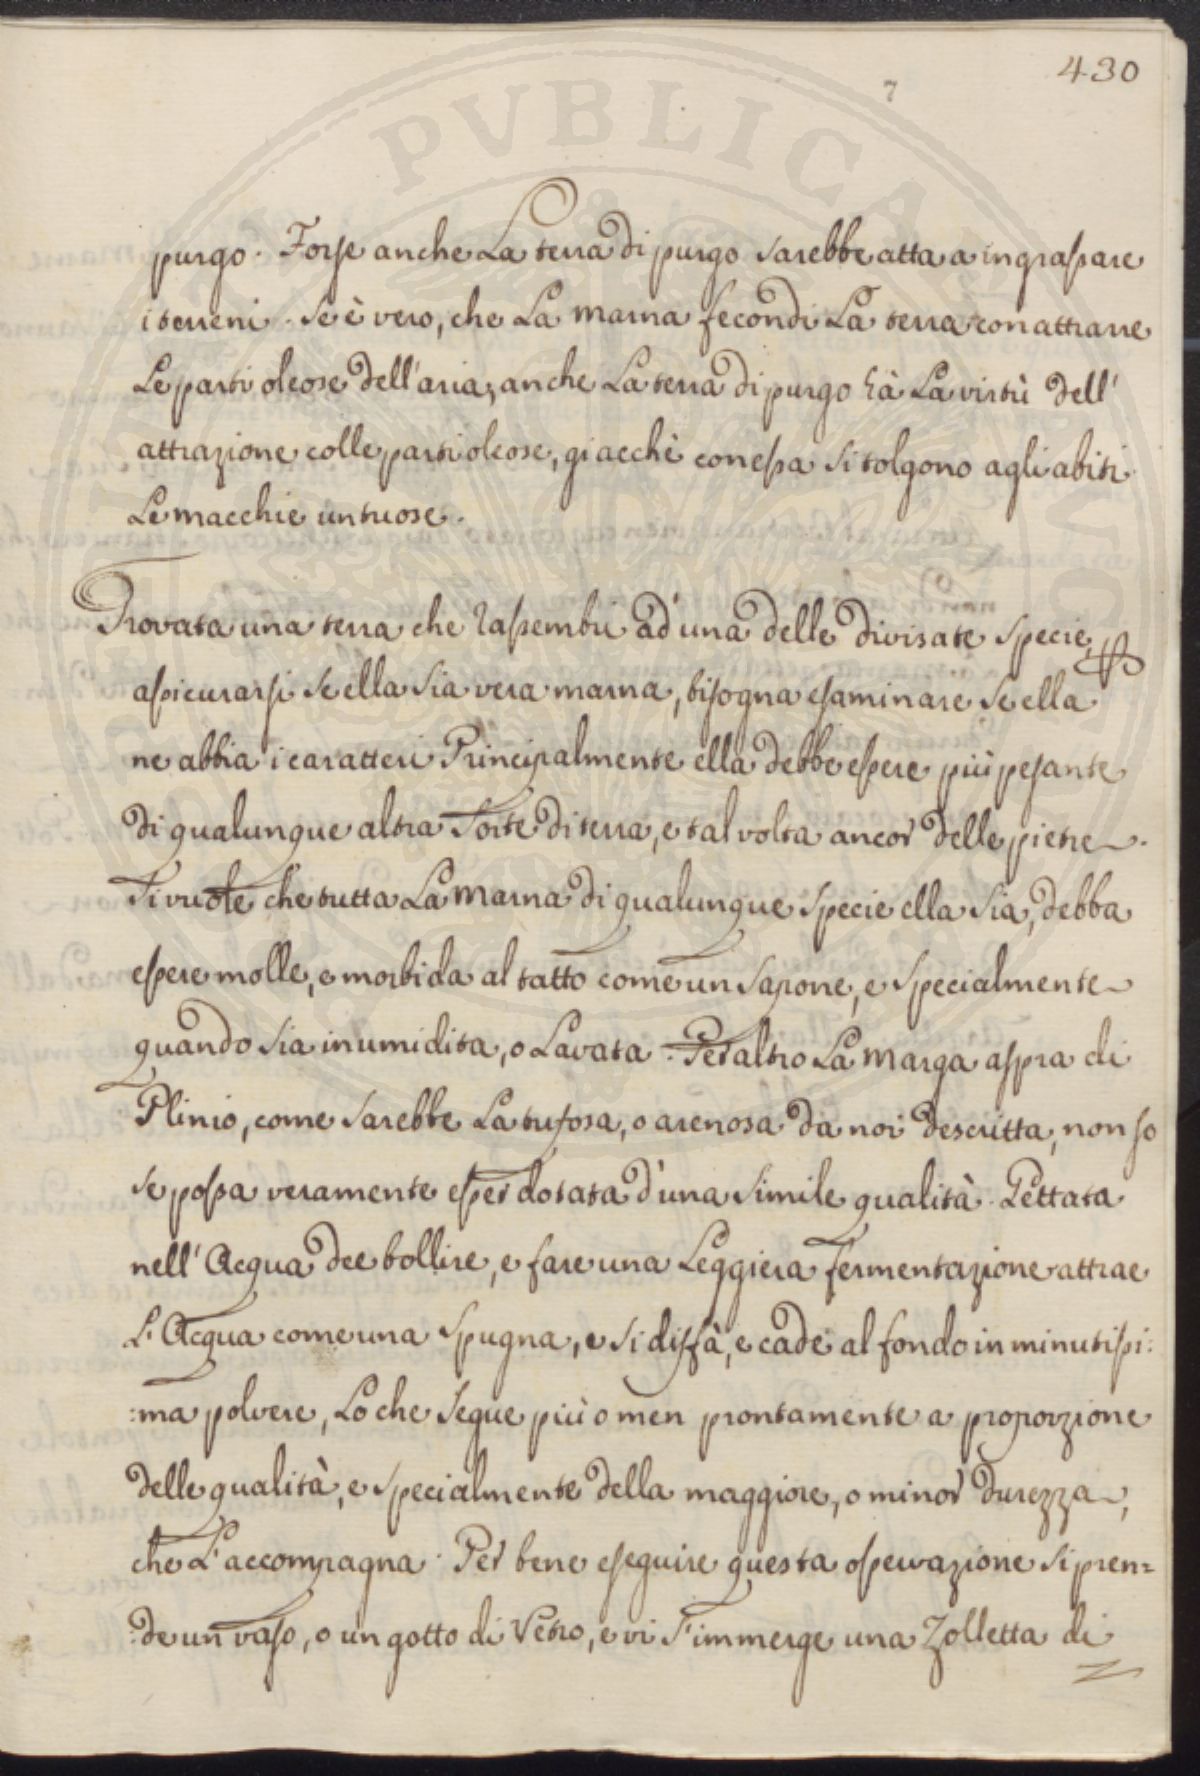 430
7
purgo. Forse anche La terra di purgo sarebbe atta a ingrassare
i terreni. Se è vero, che La marna fecondi La terra con attrarre
Le parti oleose dell'aria, anche La terra di purgo hà La virtù dell'
attrazione colle parti oleose, giacchè con essa si tolgono agli abiti
Le macchie untuose.
Trovata una terra che rassembri ad una delle divisate specie,
assicurarsi se ella sia vera marna, bisogna esaminare se ella
ne abbia i caratteri Principalmente ella debbe essere più pesante
di qualunque altra sorte di terra, e tal volta ancor delle pietre.
Si vuole che tutta La Marna di qualunque specie ella sia, debba
essere molle, e morbida al tatto come un sapone, e specialmente
quando sia inumidita, o Lavata. Per altro La marga aspra di
Plinio, come sarebbe La tufosa, o arenosa da noi descritta, non so
se possa veramente esser dotata d'una simile qualità. Gettata
nell'Acqua dee bollire, e fare una Leggiera fermentazione attrae
L'Acqua come una spugna, e si disfà, e cade al fondo in minutissi:
:ma polvere, Lo che segue più o men prontamente a proporzione
delle qualità, e specialmente della maggiore, o minor durezza,
che L'accompagna. Per bene eseguire questa osservazione si pren=
:de un vaso, o un gotto di Vetro, e vi s'immerge una Zolletta di
PVBLICA